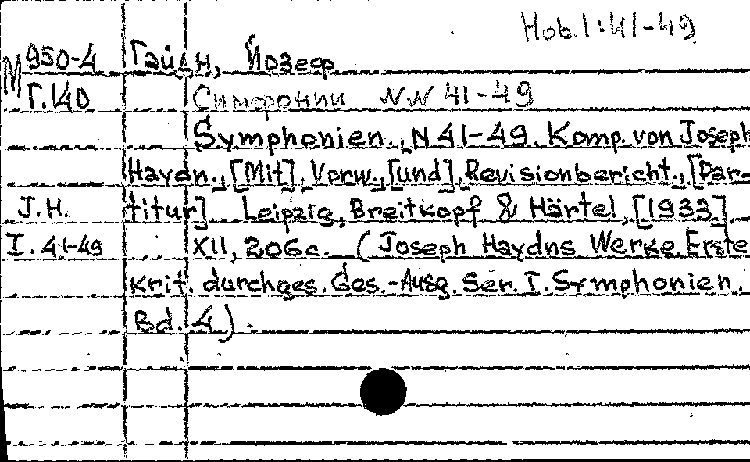 Hob. I: 41-49
М 950-4 Гайдн, Йозеф
Г. 140 Симфонии NN 41-49
Symphonien, N 41-49. Komp. von Joseph
Haydn., [Mit] Vorw., [und] Revisionbericht., [Par-
J. H. titur] Leipzig, Breitkopf & Härtel, [1933]
I. 41-49 XII, 206 c. (Joseph Haydns Werke. Erste
krit. durchges. Ges.-Ausg. Ser. I. Symphonien.
Bd. 4).